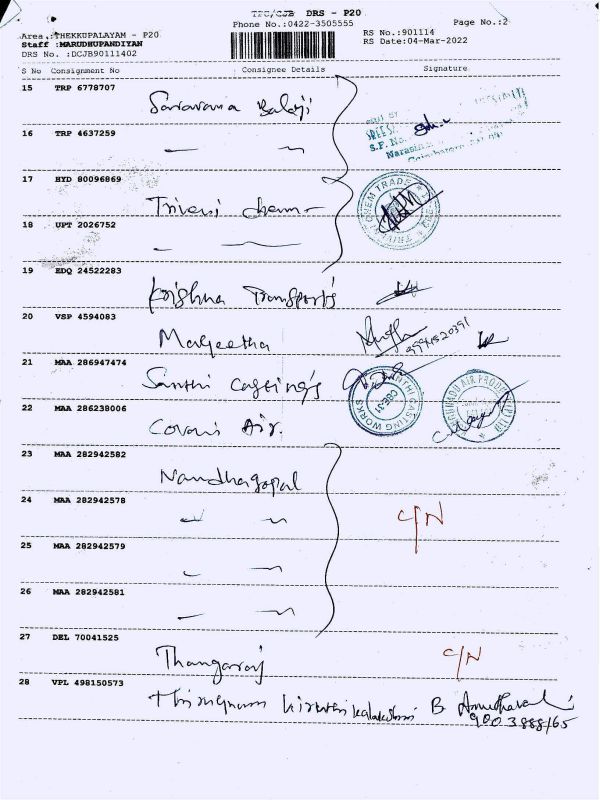 TPC/CJB DRS - P20
Phone No.:0422-3505555 Page No.:2
Area :THEKKUPALAYAM - P20 RS No.:901114
Staff :MARUDHUPANDIYAN RS Date:04-Mar-2022
DRS No. :DCJB90111402
S No Consignment No Consignee Details Signature
15 TRP 6778707
Saravana Balaji
16 TRP 4637259
S.F. No.
17 HYD 80096869
Triveni chem
18 UPT 2026752
19 EDQ 24522283
Krishna Transports
20 VSP 4594083
Malgeetha
21 MAA 286947474
Santhi Casting's
SANTHI CASTING WORKS
CBE-31
22 MAA 286238006
Covai Air.
23 MAA 282942582
Nandhagopal
24 MAA 282942578
C/N
25 MAA 282942579
26 MAA 282942581
27 DEL 70041525
Thangaraj C/N
28 VPL 498150573
B.